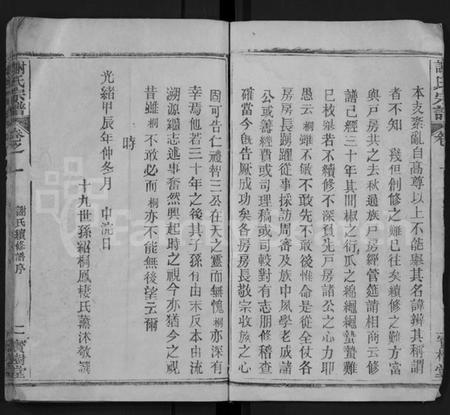 本支紊亂自高尊以上不能舉其名諱辨其稱謂
者不知 幾但創修之難已往矣續修之難方當
與戸房共之去秋邀族戸房經管筵請相商云修
譜已經三十年其間椒之衍瓜之綿繩繩蟄蟄難
已枚舉若不續修不深負先戸房諸公之心力耶
愚云 桐雖不敏不敢先不敢後惟命是從全仗各
房房長踴躍從事採訪周審及族中夙學老成請
公或籌經費或司理稿或司較對有志朋修稽查
確當今旣告厥成功矣各房房長敬宗收族之心
固可告仁禮智三公在天之靈而無愧 桐亦深有
幸焉他若三十年之後其子孫有由末反本由流
溯源繼志述事奮然興起時之視今亦猶今之視
昔雖 桐不敢必而 桐亦不能無後望云爾
時
光緒甲辰年仲冬月 中浣日
十九世孫紹桐鳳棲氏薰沐敬譔
謝氏宗譜
卷之一
謝氏續修譜序
二
寶樹堂